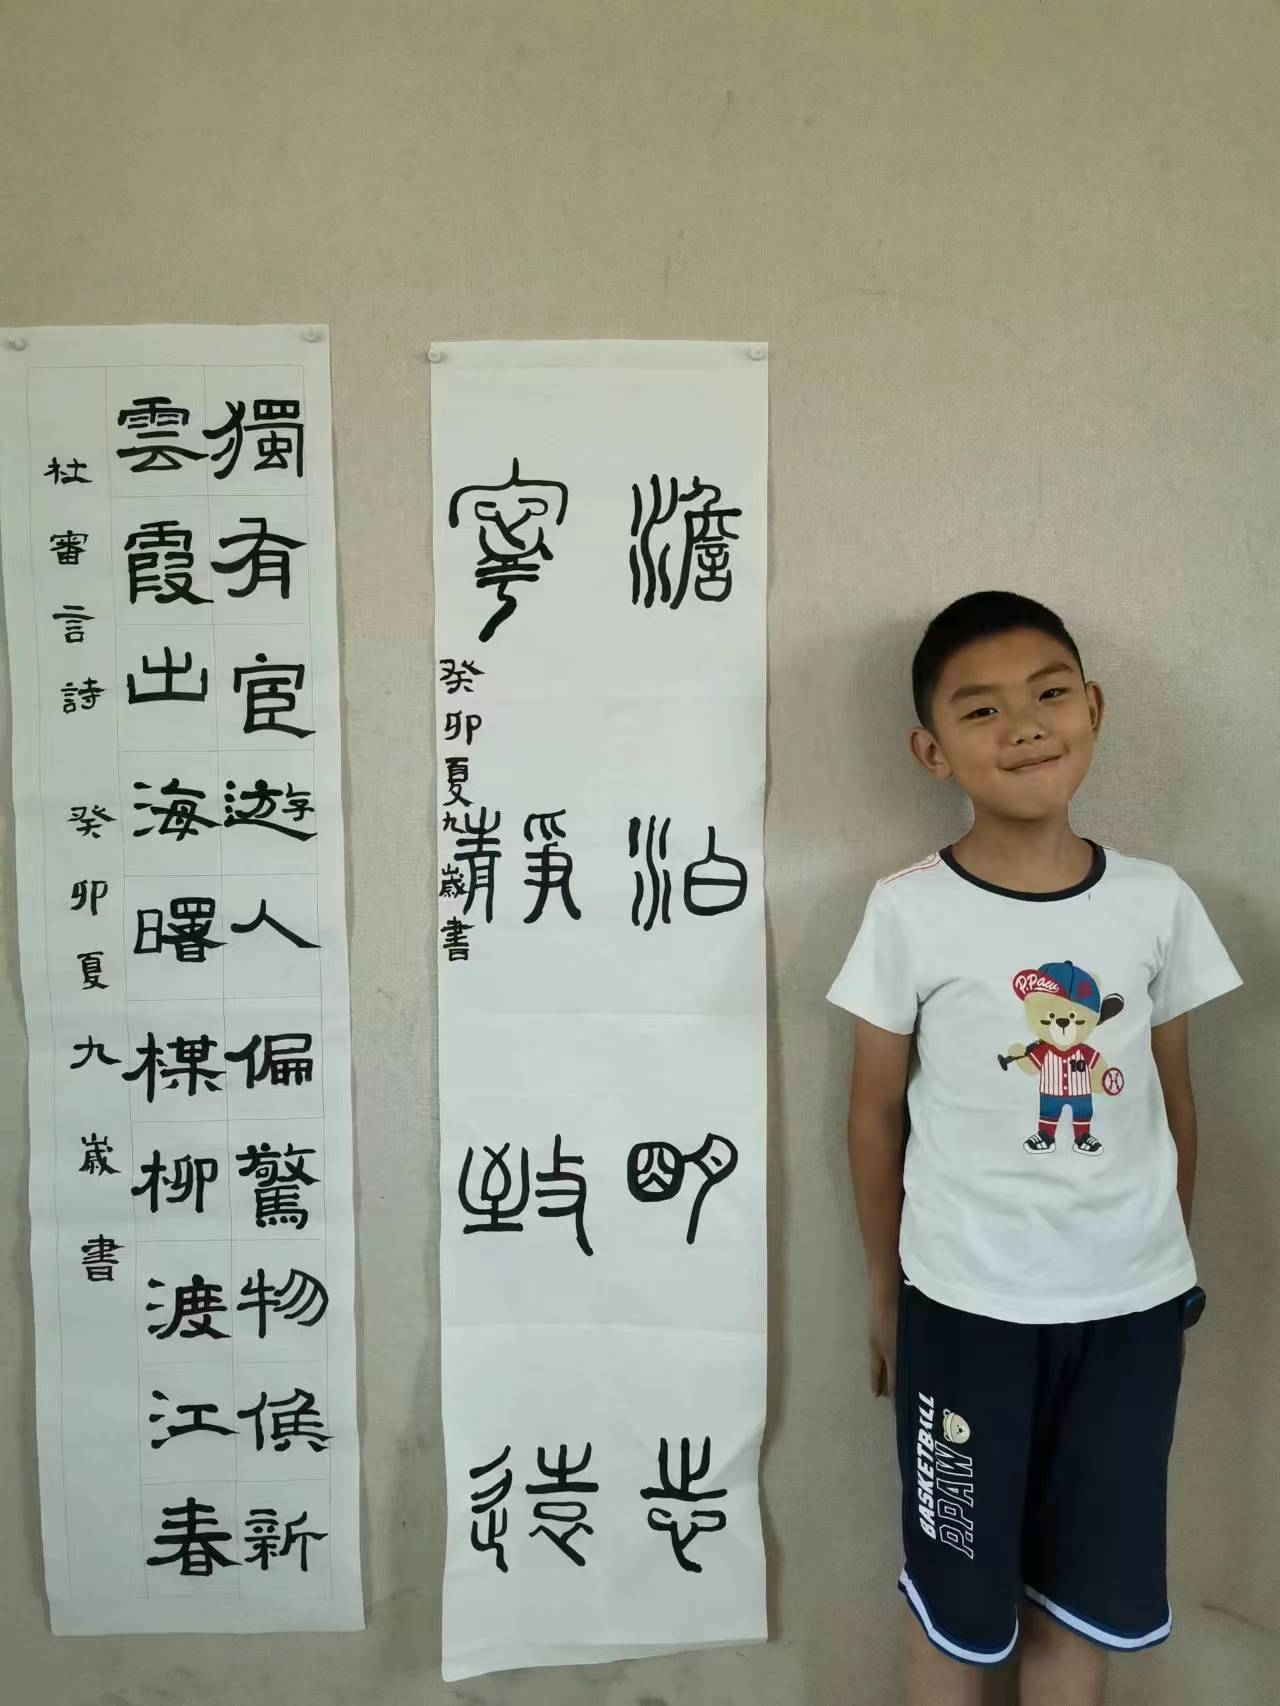 獨有宦遊人偏驚物候新
雲霞出海曙楳柳渡江春
杜審言詩 癸卯夏九歲書
澹泊明志
寧靜致遠
癸卯夏九歲書
P.Paw
10
BASKETBALL
P.PAW